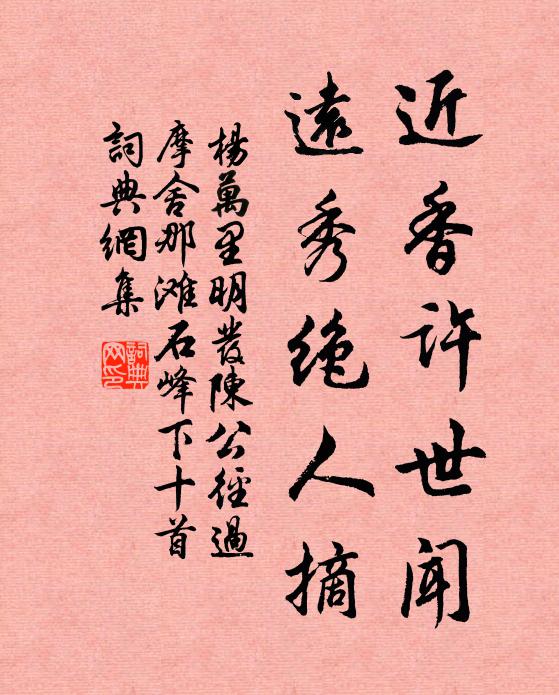 近香許世闻
遠秀绝人摘
楊萬里明發陳公徑過
摩舍那滩石峰下十首
詞典網集
詞典
网印